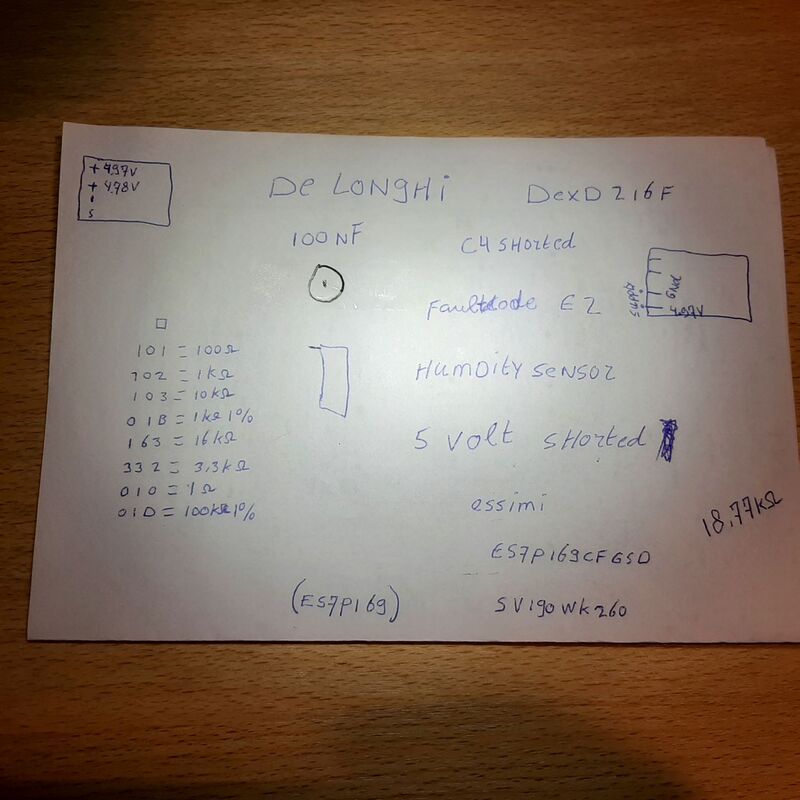 + 4.97V
+ 4.98V
S
De LONGHi
DexD 216F
100 NF
C4 SHorted
supply
GND
4.97V
Faultcode E2
101 = 100Ω
102 = 1KΩ
103 = 10KΩ
01B = 1KΩ 1%
163 = 16KΩ
332 = 3,3KΩ
010 = 1Ω
01D = 100KΩ 1%
HUMDity SENSOR
5 Volt SHorted
essimi
18,77KΩ
ES7P169CFGSD
(ES7P169)
SV190WK260